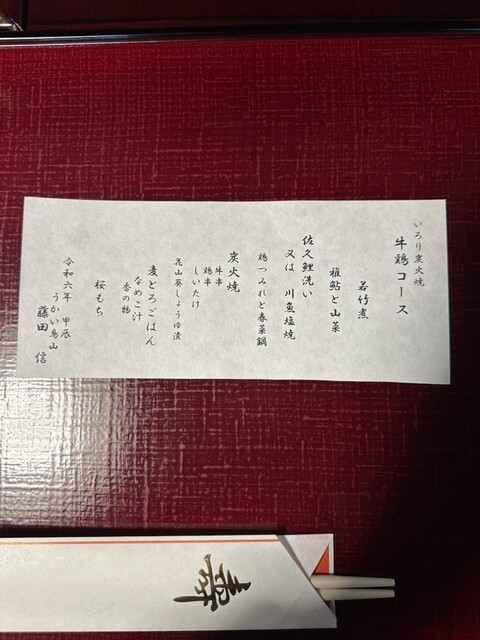 いろり炭火焼
牛鶏コース
若竹煮
稚鮎と山菜
佐久鯉洗い
又は 川魚塩焼
鶏つみれと春菜鍋
炭火焼
牛串
鶏串
しいたけ
花山葵しょうゆ漬
麦とろごはん
なめこ汁
香の物
桜もち
令和六年 甲辰
うかい鳥山
藤田 信
寿